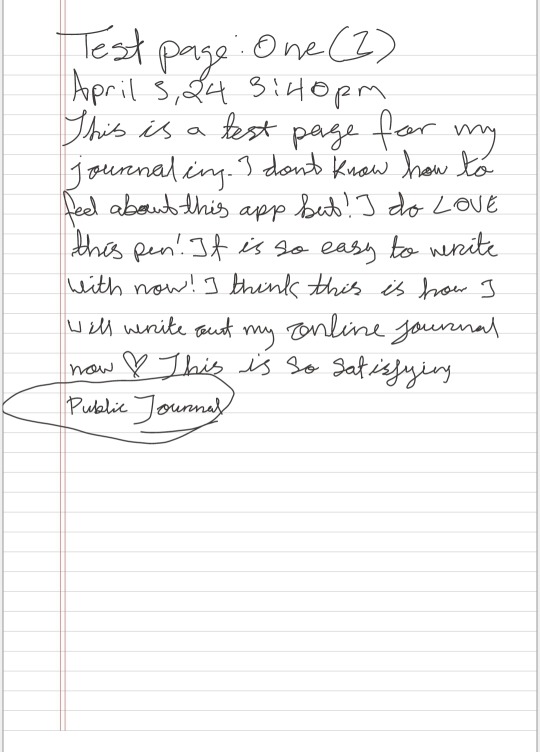 Test page: One (1)
April 3,24 3:40pm
This is a test page for my
journaling. I dont know how to
feel about this app but! I do LOVE
this pen! It is so easy to write
with now! I think this is how I
will write out my online journal
now ♡ This is so satisfying
Public Journal